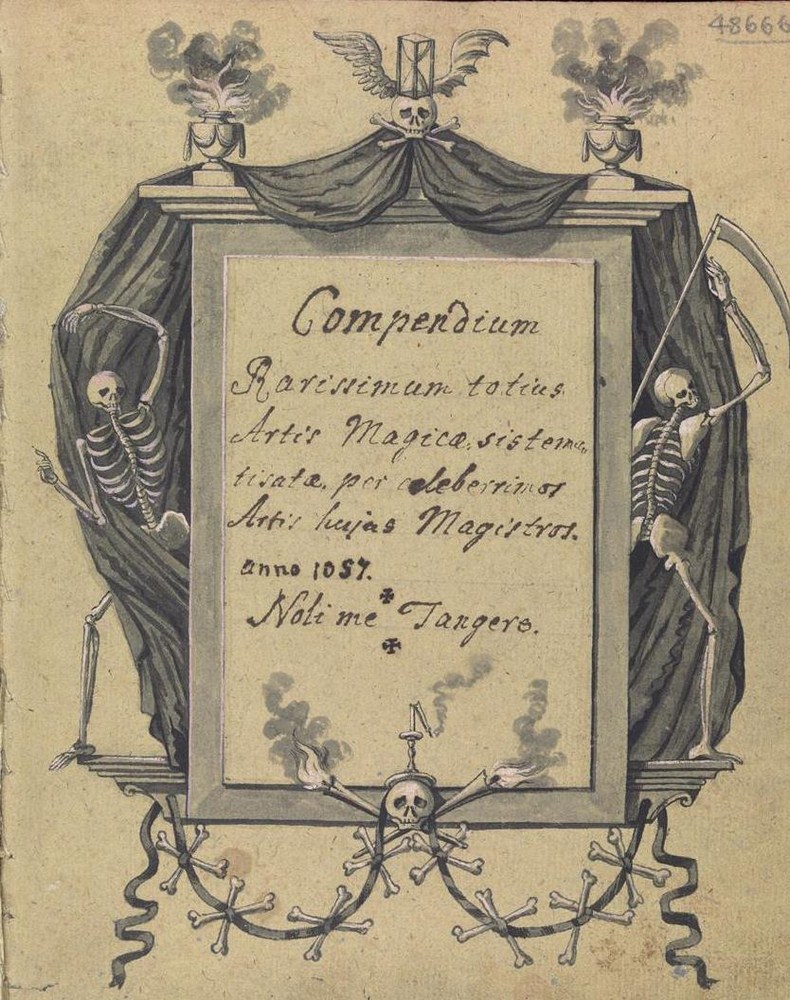 48666
Compendium
Rarissimum totius
Artis Magicæ sistema
tisatæ per celeberrimos
Artis hujus Magistros.
anno 1057.
Noli me Tangere.